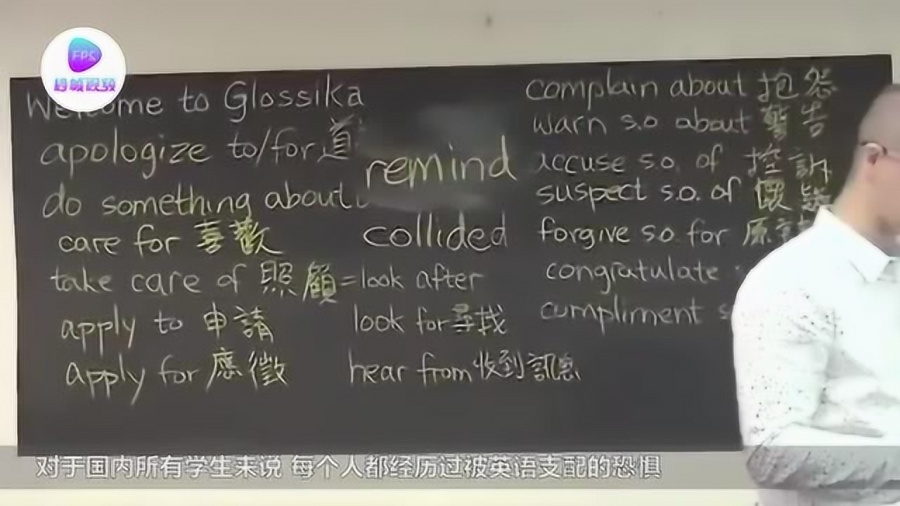 FPS
Welcome to Glossika
apologize to/for 道
do something about
care for 喜歡
take care of 照顧=look after
apply to 申請
apply for 應徵
remind
collided
look for 尋找
hear from 收到訊息
complain about 抱怨
warn s.o about 警告
accuse s.o. of 控訴
suspect s.o. of 懷疑
forgive s.o. for 原
congratulate
compliment s
对于国内所有学生来说 每个人都经历过被英语支配的恐惧